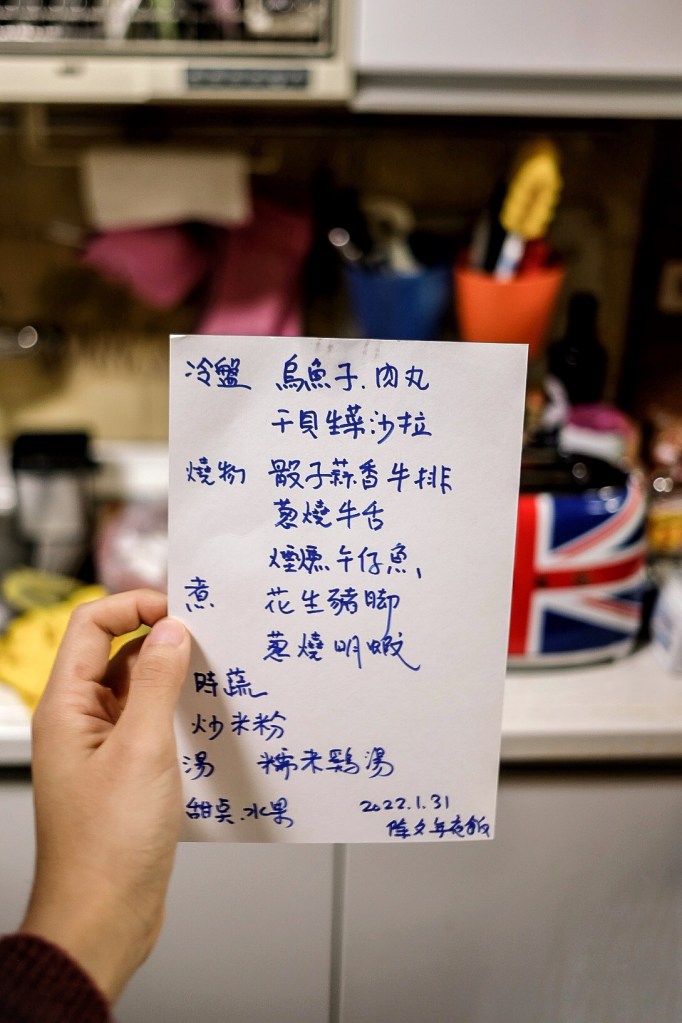 冷盤 烏魚子.肉丸
干貝生菜沙拉
燒物 骰子蒜香牛排
蔥燒牛舌
煙燻午仔魚
煮 花生豬腳
蔥燒明蝦
時蔬
炒米粉
湯 糯米鷄湯
甜点.水果 2022.1.31
除夕年夜飯